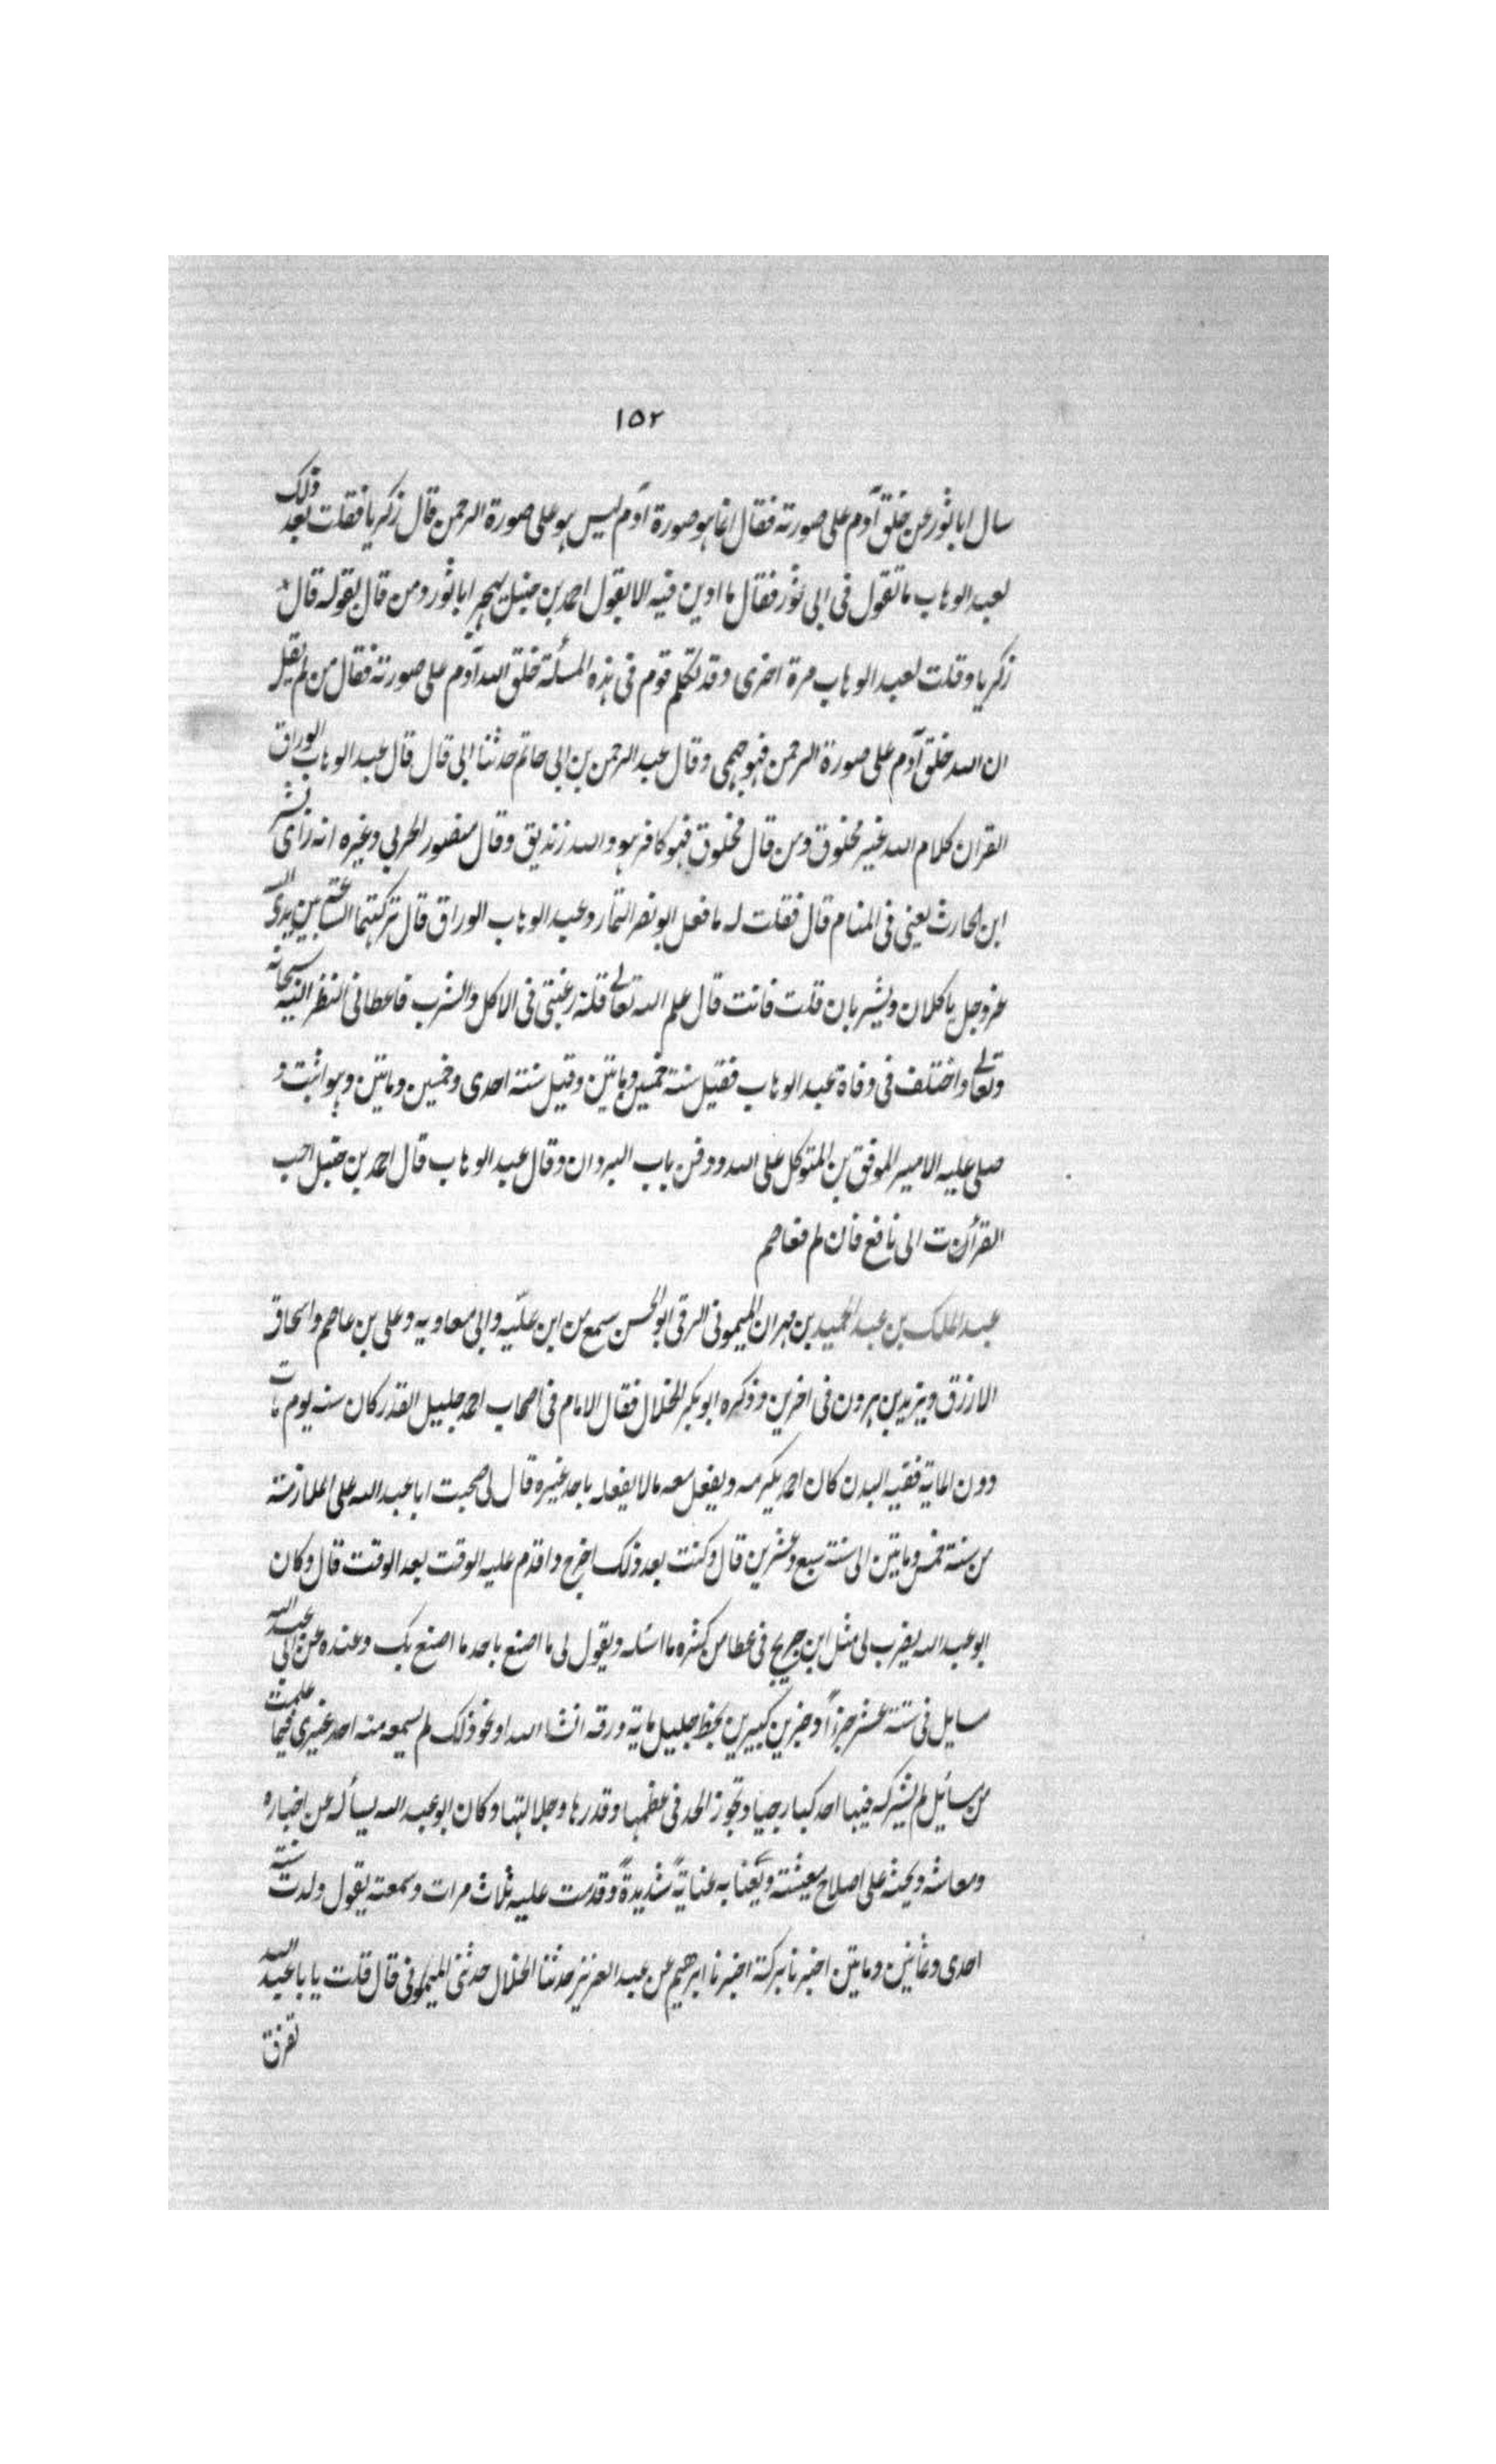 ١٥٢
سال ابا ثور عن خلق آدم على صورته فقال انما هو صورة آدم ليس هو على صورة الرحمن قال زكريا فقلت بعد ذلك
لعبد الوهاب ما تقول فى ابى ثور فقال ما ادين فيه الا بقول احمد بن حنبل يهجر ابا ثور ومن قال بقوله قال
زكريا وقلت لعبد الوهاب مرة اخرى وقد تكلم قوم فى هذه المسألة خلق الله آدم على صورته فقال من لم يقل
ان الله خلق آدم على صورة الرحمن فهو جهمى وقال عبد الرحمن بن ابى حاتم حدثنا ابى قال قال عبد الوهاب الوراق
القران كلام الله غير مخلوق ومن قال مخلوق فهو كافر هو والله زنديق وقال منصور الحربي وغيره انه رأى بشر
ابن الحارث يعنى فى المنام قال فقلت له ما فعل ابو نصر التمار وعبد الوهاب الوراق قال تركتهما الساعة بين يدى الله
عز وجل ياكلان ويشربان قلت فانت قال علم الله تعالى قلة رغبتى فى الاكل والشرب فاعطانى النظر اليه سبحانه
وتعالى واختلف فى وفاة عبد الوهاب فقيل سنة خمسين وماتين وقيل سنة احدى وخمسين وماتين وهو اثبت و
صلى عليه الامير الموفق بن المتوكل على الله ودفن بباب البردان وقال عبد الوهاب قال احمد بن حنبل احب
القرأت الى نافع فان لم فعاصم
عبد الملك بن عبد الحميد بن مهران الميمونى الرقى ابو الحسن سمع من ابن عليّه وابى معاويه وعلى بن عاصم واسحاق
الازرق ويزيد بن هرون فى اخرين وذكره ابو بكر الخلال فقال الامام فى اصحاب احمد جليل القدر كان سنه يوم مات
دون الماية فقيه البدن كان احمد يكرمه ويفعل معه مالا يفعله باحد غيره قال لى صحبت ابا عبد الله على الملازمة
من سنة خمس وماتين الى سنة سبع وعشرين قال وكنت بعد ذلك اخرج واقدم عليه الوقت بعد الوقت قال وكان
ابو عبد الله يضرب لى مثل ابن جريج فى عطا من كثره ما اسله ويقول لى ما اصنع باحد ما اصنع بك وعنده عن ابى عبد الله
مسايل فى ستة عشر جزأ وجزين كبيرين بخط جليل ماية ورقه انشا الله او نحو ذلك لم يسمعه منه احد غيرى فيما علمت
من مسائل لم يشركه فيها احد كبار جياد تجوز الحد فى عظمها وقدرها وجلالتها وكان ابو عبد الله يسأله عن اخباره
ومعاشه ويحثه على اصلاح معيشته ويعنا به عنايةً شديدةً وقدمت عليه ثلاث مرات وسمعته يقول ولدت سنة
احدى وثمانين وماتين اخبرنا بركة اخبرنا ابرهيم عن عبد العزيز حدثنا الخلال حدثنى الميمونى قال قلت يا با عبد الله
تفرق